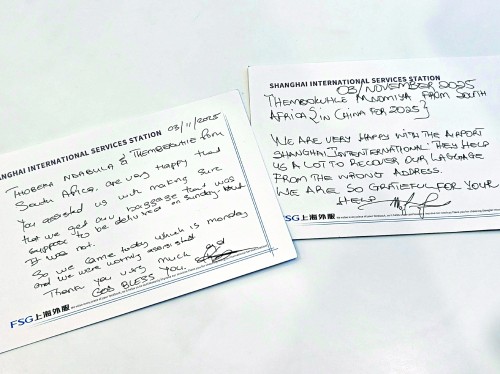 SHANGHAI INTERNATIONAL SERVICES STATION
03/11/2025
THOBEKA NDABULA & THEMBOKUHLE from
South Africa. are very happy that
You assisted us with making sure
that we get our baggage that was
suppose to be delivered on Sunday but
It was not.
So we came today which is monday
and we were warmly assisted
Thank you very much
GOD BLESS YOU.
FSG上海外服
SHANGHAI INTERNATIONAL SERVICES STATION
03/NOVEMBER 2025
THEMBOKUHLE MNOMIYA FROM SOUTH
AFRICA {IN CHINA FOR 2025}
WE ARE VERY HAPPY WITH THE AIRPORT
SHANGHAI INTENTERNATIONAL. THEY HELP
US A LOT TO RECOVER OUR LAGGAGE
FROM THE WRONG ADDRESS.
WE ARE SO GRATIEFUL FOR YOUR
HELP
FSG上海外服